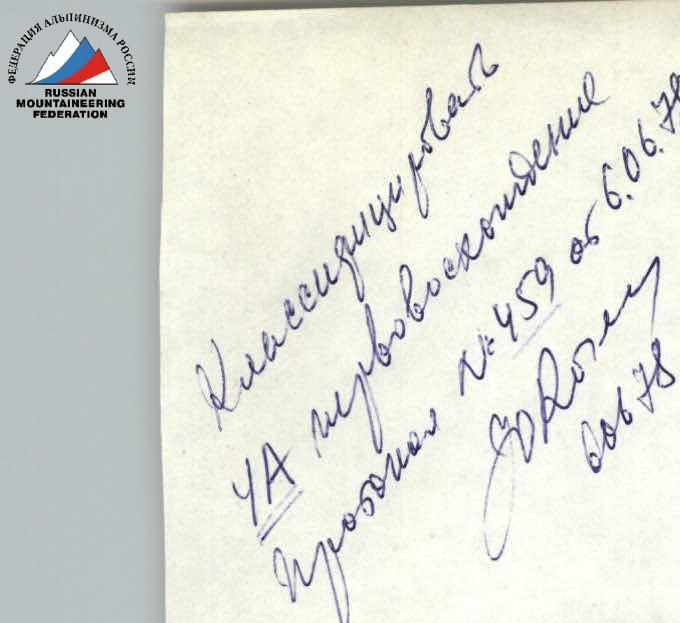 ФЕДЕРАЦИЯ АЛЬПИНИЗМА РОССИИ
RUSSIAN
MOUNTAINEERING
FEDERATION
Классифицировать
4А первовосхождение
Протокол № 459 от 6.06.78